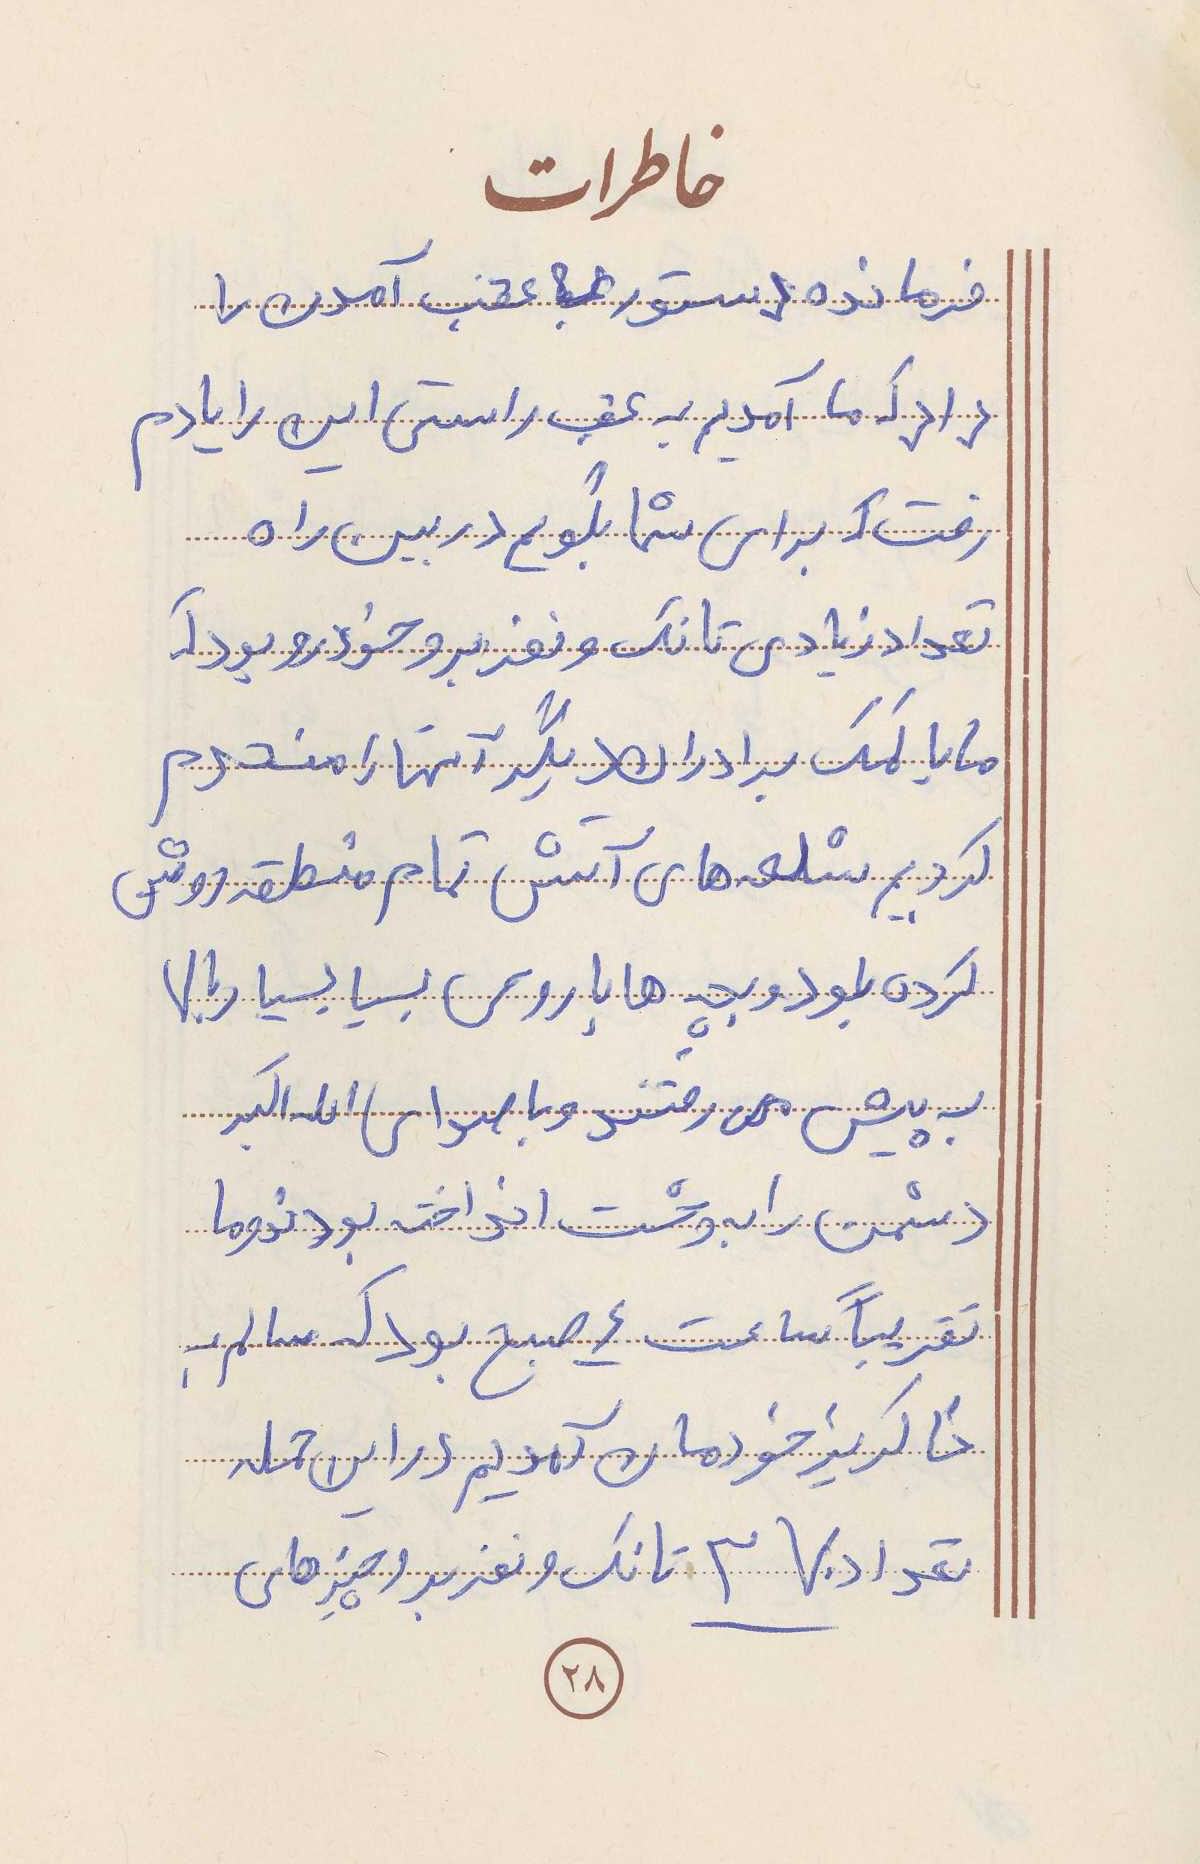 خاطرات
فرمانده دستور عقب آمدن را
داد که ما آمدیم به عقب راستی این را یادم
رفت که برای شما بگویم در بین راه
تعداد زیادی تانک و نفربر و خودرو بود که
ما با کمک برادران دیگر آنها را منهدم
کردیم شلعه های آتش تمام منطقه روشن
کردن بلود و بچه ها با روحی بسیا بسیار بالا
به پیش می رفتند و با صدای الله اکبر
دشمن را به وحشت انداخته بودند و ما
تقریباً ساعت ۴ صبح بود که سالم به
خاکریز خودمان آمدیم در این حمله
تعداد ۳۷۰ تانک و نفربر و چیزهای
۲۸